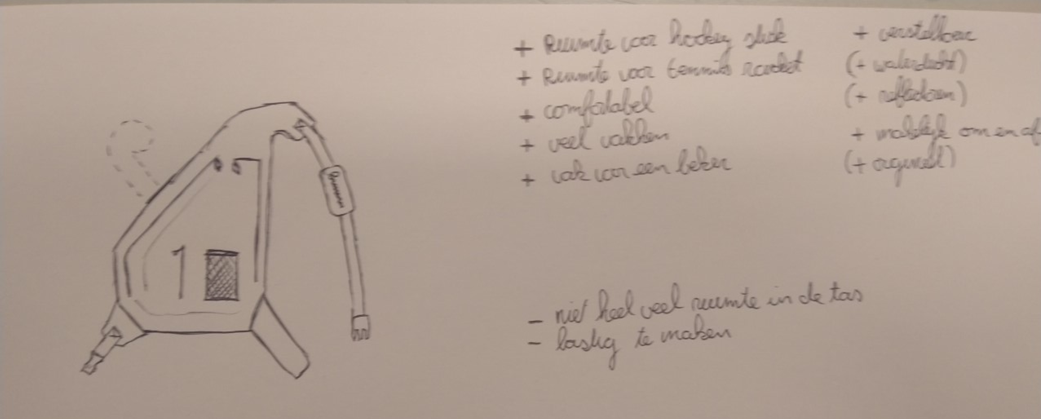 + Ruimte voor hockey stick
+ Ruimte voor tennis racket
+ comfortabel
+ veel vakken
+ vak voor een beker
+ verstelbaar
(+ waterdicht)
(+ reflecteren)
+ makkelijk om en af
(+ origineel)
1
- niet heel veel ruimte in de tas
- lastig te maken